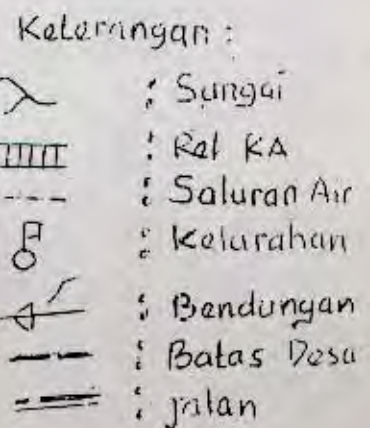 Keterangan :
: Sungai
: Rel KA
: Saluran Air
: Kelurahan
: Bendungan
: Batas Desa
: jalan